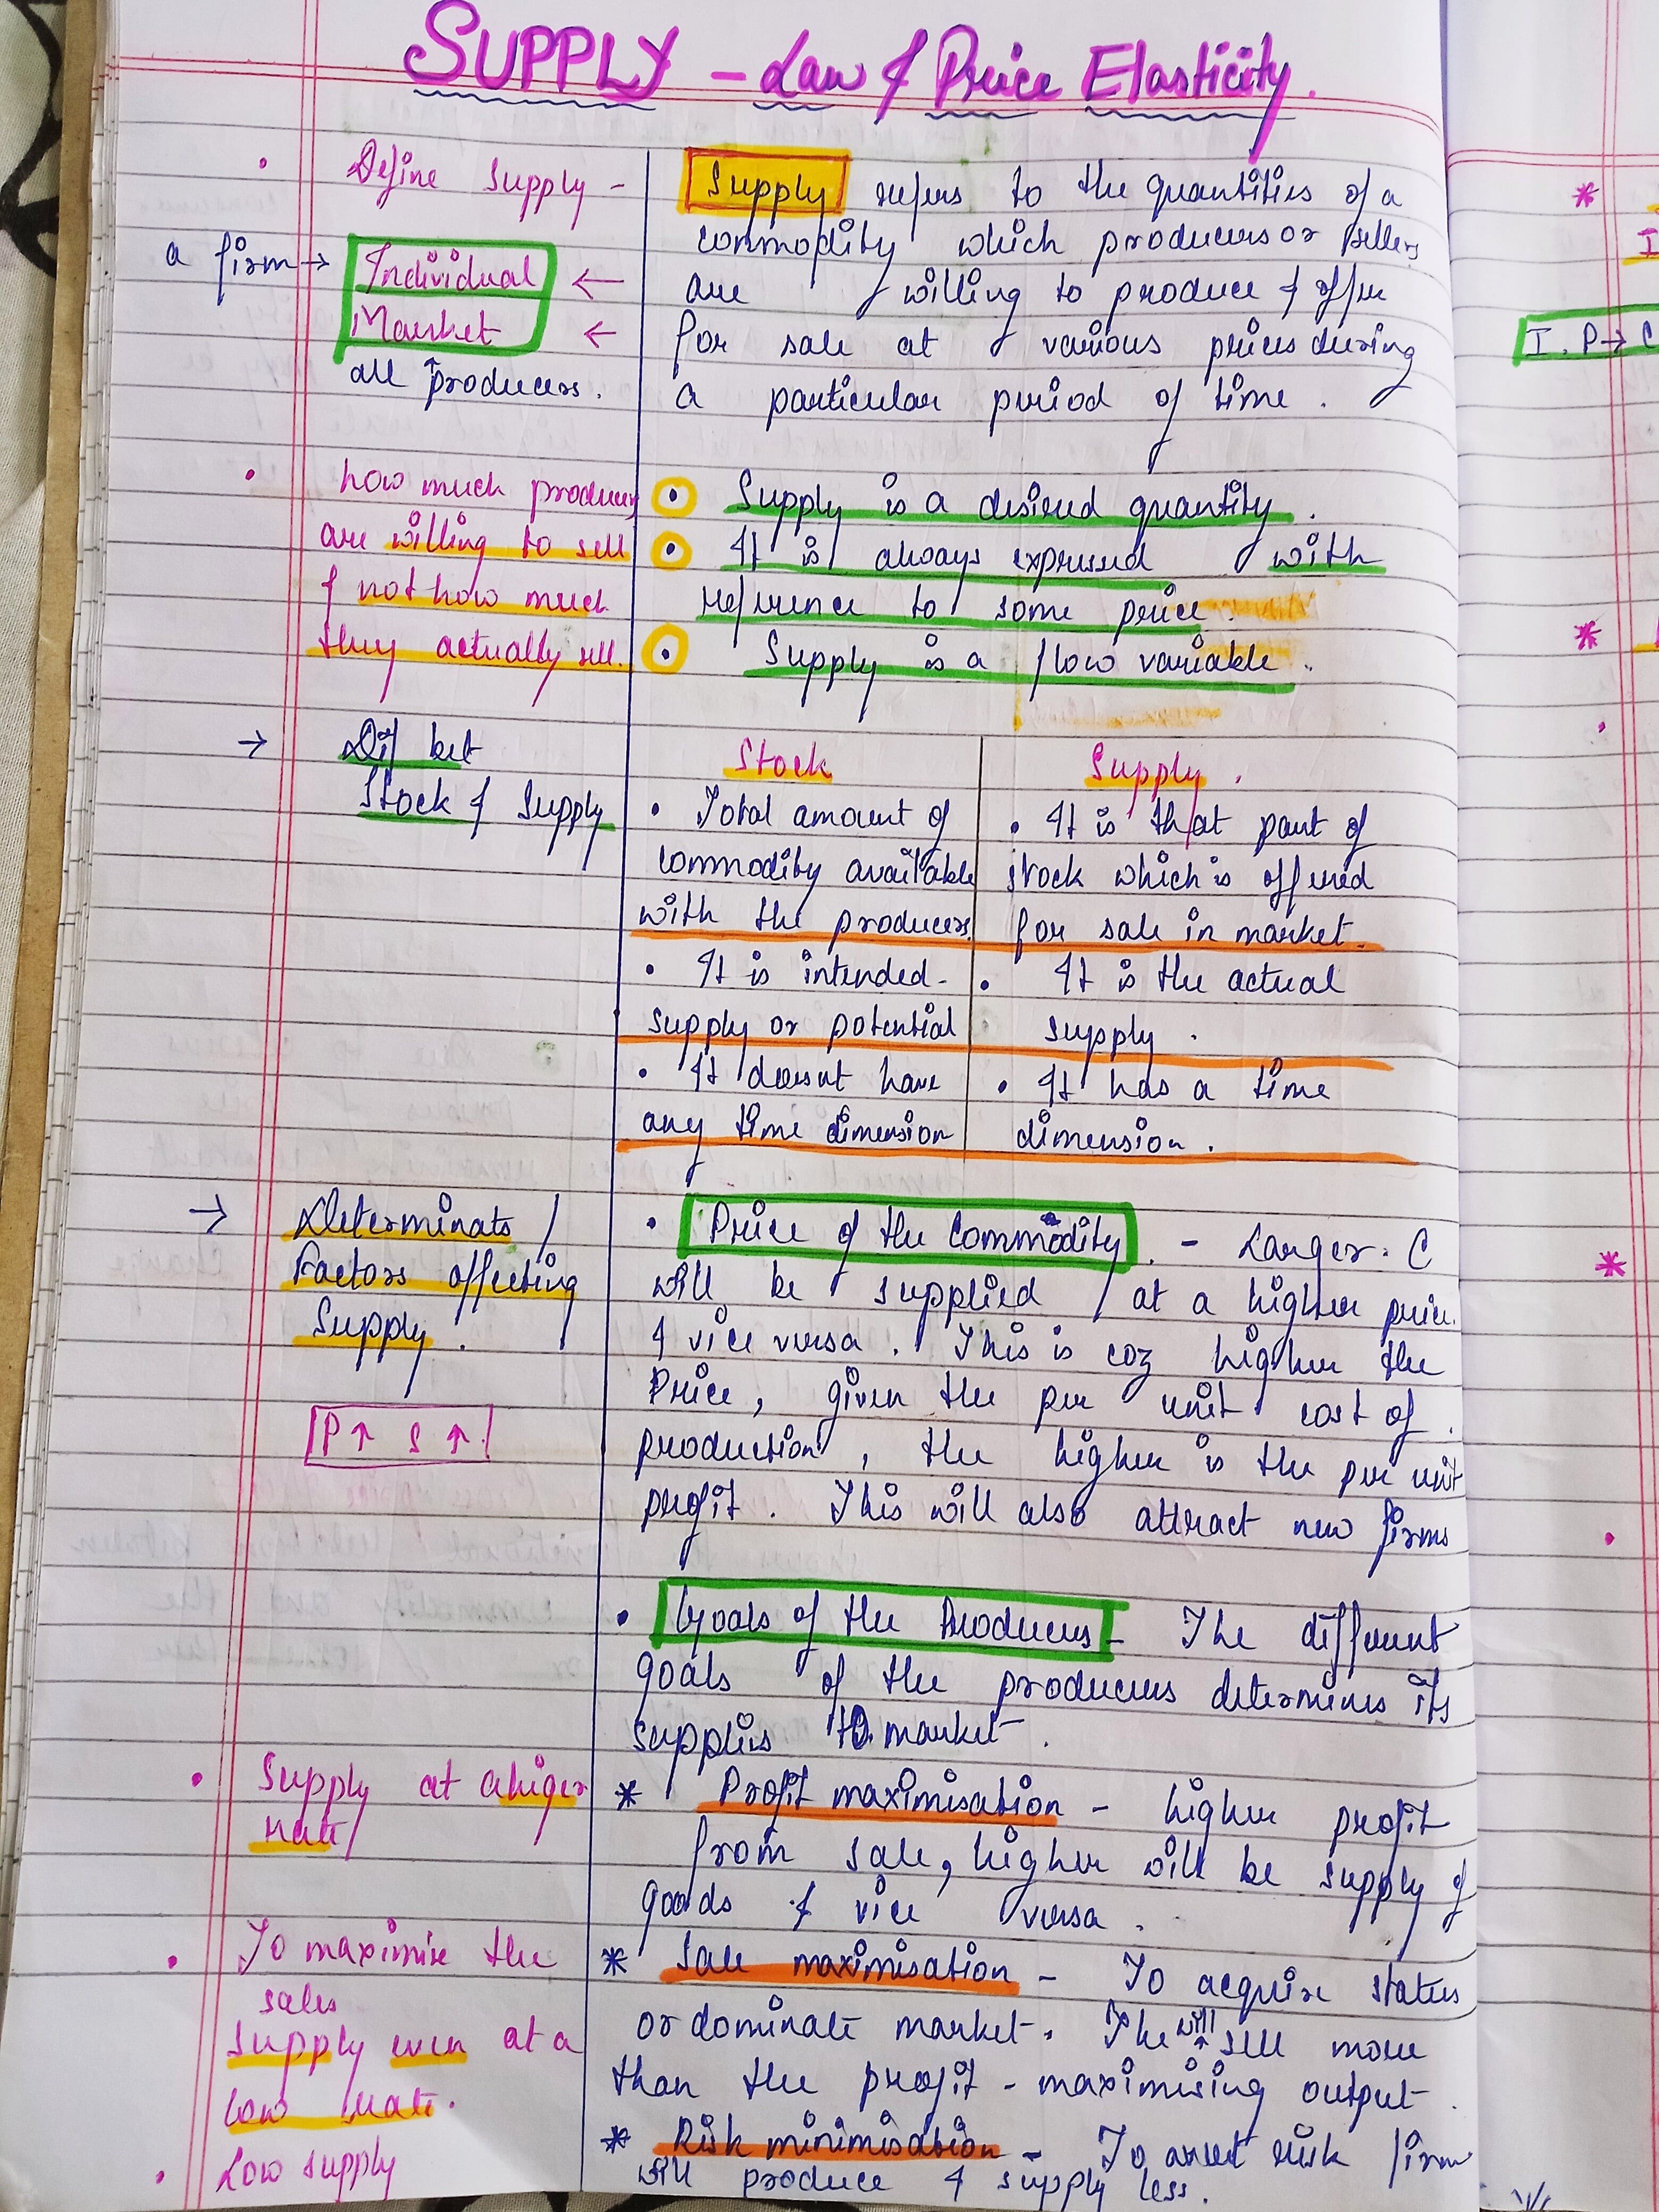 SUPPLY - Law & Price Elasticity.
• Define Supply -
a firm → Individual ←
Market ←
all producers.
Supply refers to the quantities of a
commodity which producers or sellers
are willing to produce & offer
for sale at various prices during
a particular period of time.
• how much producers
are willing to sell
& not how much
they actually sell.
• Supply is a desired quantity.
• It is always expressed with
reference to some price.
• Supply is a flow variable.
→ Dif bet
Stock & Supply
Stock
• Total amount of
commodity available
with the producers.
• It is intended
supply or potential
• It doesnt have
any time dimension
Supply.
• It is that part of
stock which is offered
for sale in market.
• It is the actual
supply.
• It has a time
dimension.
→ Determinats /
Factors affecting
Supply.
P↑ S↑
• Price of the Commodity. - Larger C
will be supplied at a higher price.
& vice versa. This is coz higher the
Price, given the per unit cost of
production, the higher is the per unit
profit. This will also attract new firms
• Goals of the Producers - The different
goals of the producers determines its
supplies to market.
• Supply at a higer
rate
* Profit maximisation - higher profit
from sale, higher will be supply of
goods & vice versa.
• To maximise the
sales
supply even at a
low rate.
* Sale maximisation - To acquire status
or dominate market. The will sell more
than the profit - maximising output.
• Low supply
* Risk minimisation - To avert risk firm
will produce & supply less.
*
I
I. P → C
*
*